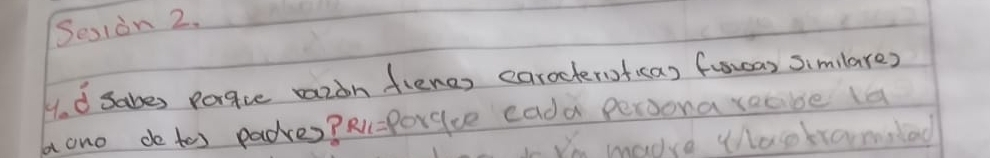 Sesión 2.
4. ¿Sabes porque razón tienes caracteristicas fisicas similares
a uno de tus padres? R//= Porque cada persona recibe la
madre y la otra mitad